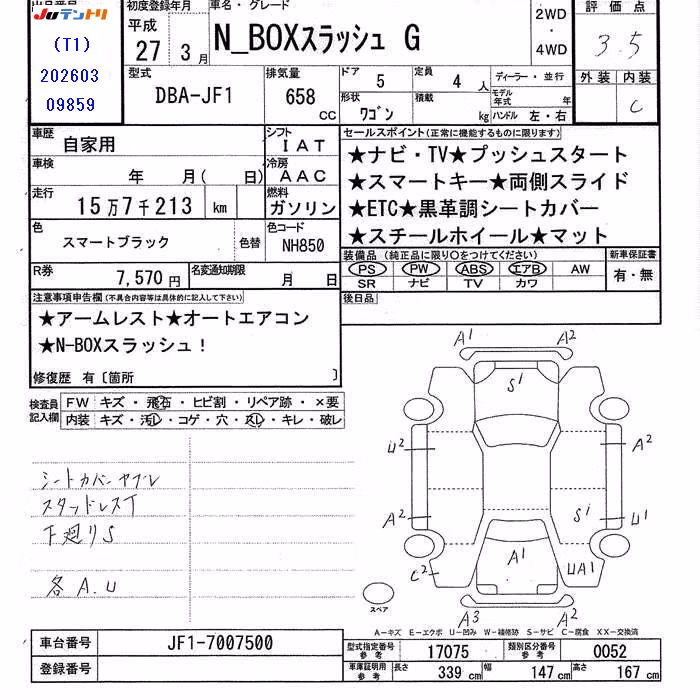 出品番号
Juテントリ
(T1)
202603
09859
初度登録年月
平成
27 3月
車名・グレード
N_BOXスラッシュ G
2WD
・
4WD
評価点
3.5
外装 内装
C
型式
DBA-JF1
排気量
658 CC
ドア 5
定員 4 人
形状 ワゴン
積載 kg
ディーラー・並行
モデル年式 年
ハンドル 左・右
車歴 自家用
シフト IAT
車検 年 月( 日)
冷房 AAC
走行 15万7千213 km
燃料 ガソリン
色 スマートブラック 色替
色コード NH850
R券 7,570円
名変通知期限 月 日
セールスポイント(正常に機能するものに限ります)
★ナビ・TV★プッシュスタート
★スマートキー★両側スライド
★ETC★黒革調シートカバー
★スチールホイール★マット
装備品(純正品に限り○をつけてください)
新車保証書
PS PW ABS エアB AW
SR ナビ TV カワ
有・無
後日品
注意事項申告欄(不具合内容等は具体的に記入して下さい)
★アームレスト★オートエアコン
★N-BOXスラッシュ!
修復歴 有〔箇所 〕
検査員記入欄
FW キズ・飛石・ヒビ割・リペア跡・×要
内装 キズ・汚レ・コゲ・穴・スレ・キレ・破レ
シートカバーヤブレ
スタッドレスT
下廻りS
各A.U
A1 A2
S1
U2 A2
A2 S1 U1
A1
C2 UA1
スペア
A3 A2
A−キズ E−エクボ U−凹み W−補修跡 S−サビ C−腐食 XX−交換済
車台番号 JF1-7007500
登録番号
型式指定番号参考 17075
類別区分番号参考 0052
車庫証明用参考 長さ 339 cm 幅 147 cm 高さ 167 cm